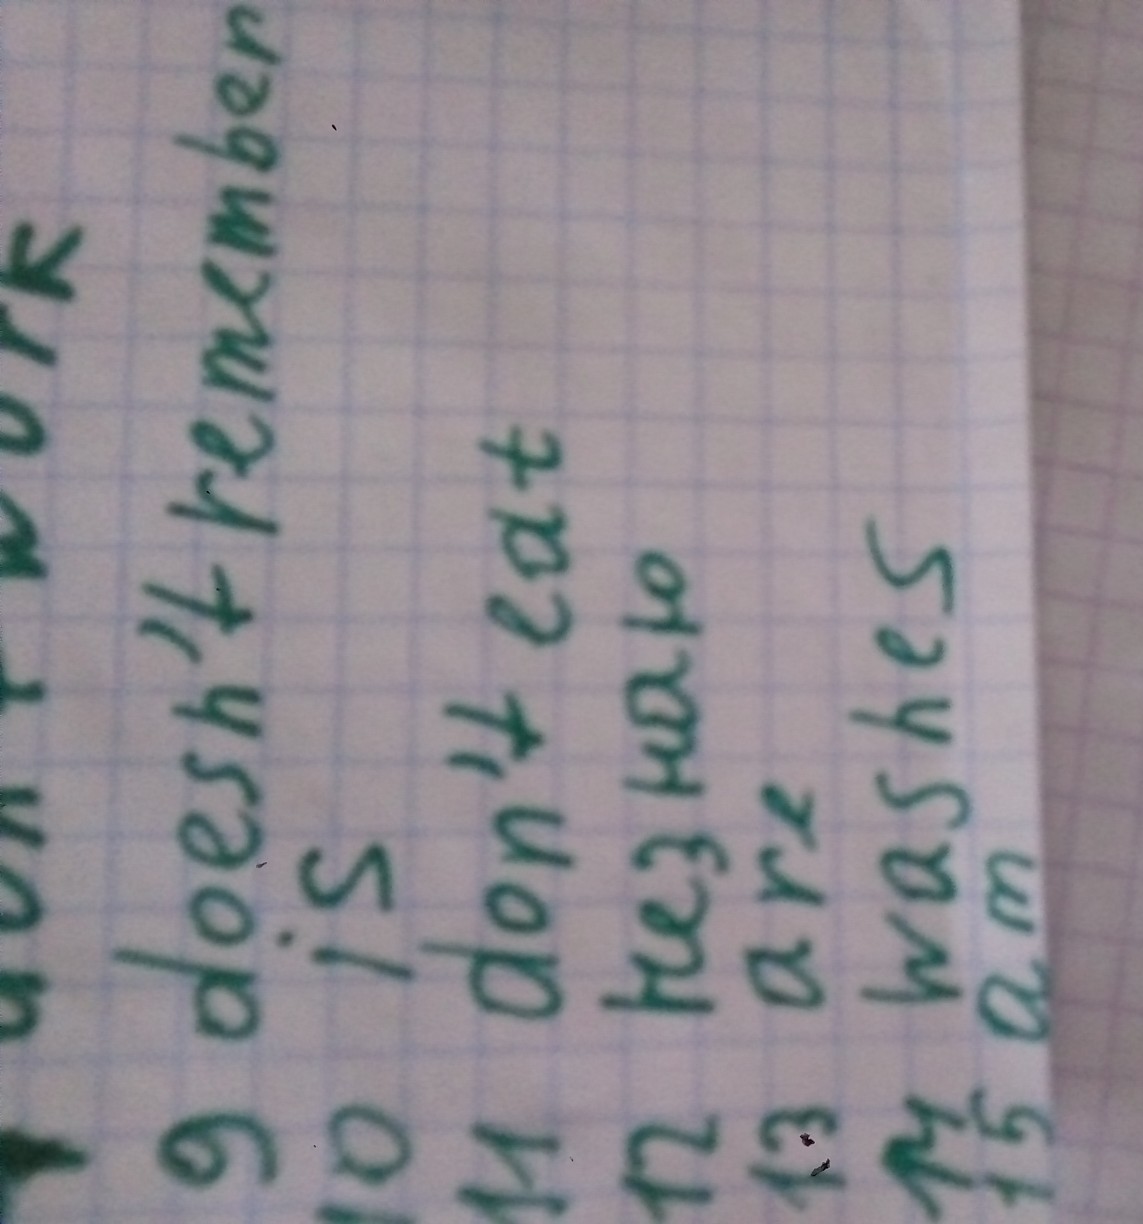 don't work
9 doesn't remember
10 is
11 don't eat
12 незнаю
13 are
14 washes
15 am